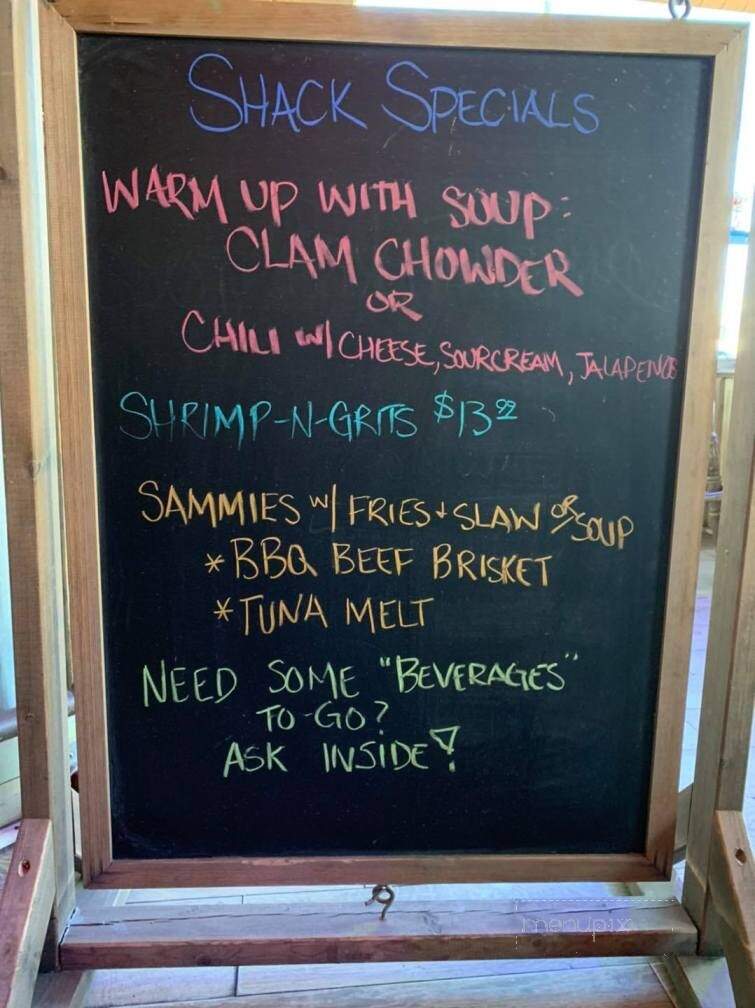 SHACK SPECIALS
WARM UP WITH SOUP:
CLAM CHOWDER
OR
CHILI W/ CHEESE, SOURCREAM, JALAPENOS
SHRIMP-N-GRITS $13.99
SAMMIES W/ FRIES + SLAW OR SOUP
*BBQ BEEF BRISKET
*TUNA MELT
NEED SOME "BEVERAGES"
TO-GO?
ASK INSIDE!
menupix